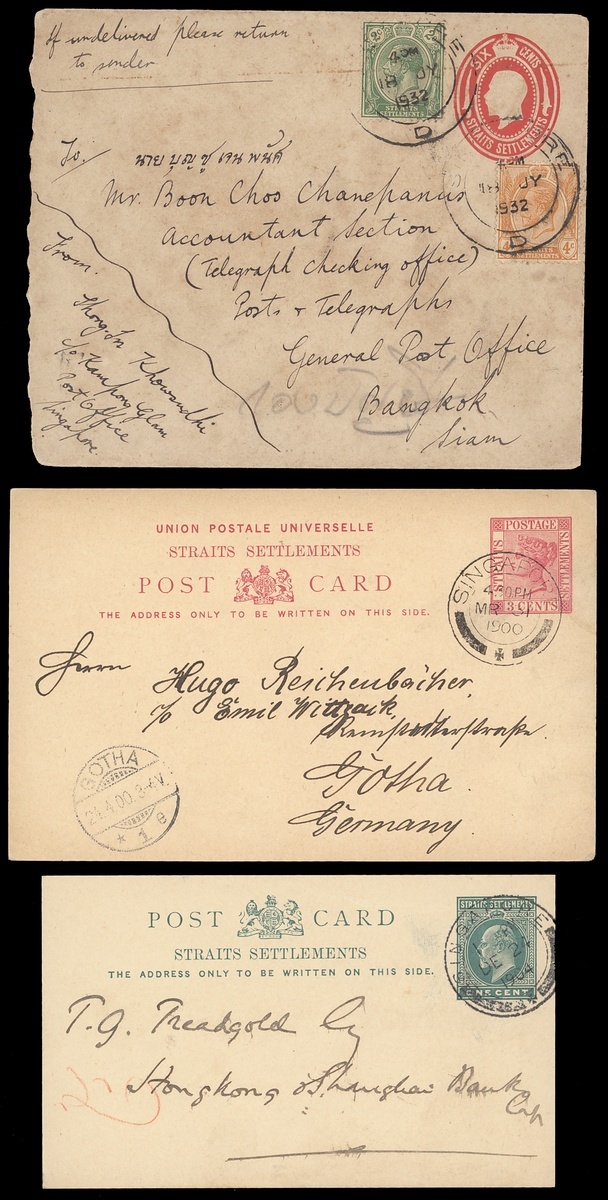 If undelivered please return
to sender
2c 2c
STRAITS
SETTLEMENTS
4 PM
18 JY
1932
D
SIX CENTS
STRAITS SETTLEMENTS
RE
PM
18 JY
1932
D
4c
SETTLEMENTS
To/ นาย บุญ ชู เจน พนัศ
Mr. Boon Choo Chanepanus
Accountant Section
(Telegraph checking office)
Posts & Telegraphs
General Post Office
Bangkok
Siam
From.
Khowsudhi
c/o Kampong Glam
Post Office
Singapore.
UNION POSTALE UNIVERSELLE
STRAITS SETTLEMENTS
POST CARD
THE ADDRESS ONLY TO BE WRITTEN ON THIS SIDE.
POSTAGE
STRAITS
SETTLEMENTS
3 CENTS
SINGAP
PM
MR 31
1900
Herrn Hugo Reichenbächer,
c/o Emil
Gotha.
Germany.
GOTHA
24.4.00. 3-4V.
* 1 e
POST CARD
STRAITS SETTLEMENTS
THE ADDRESS ONLY TO BE WRITTEN ON THIS SIDE.
STRAITS SETTLEMENTS
ONE CENT
SINGAPORE
DE
1904
T.G. Treadgold Esq
Hongkong & Shanghai Bank